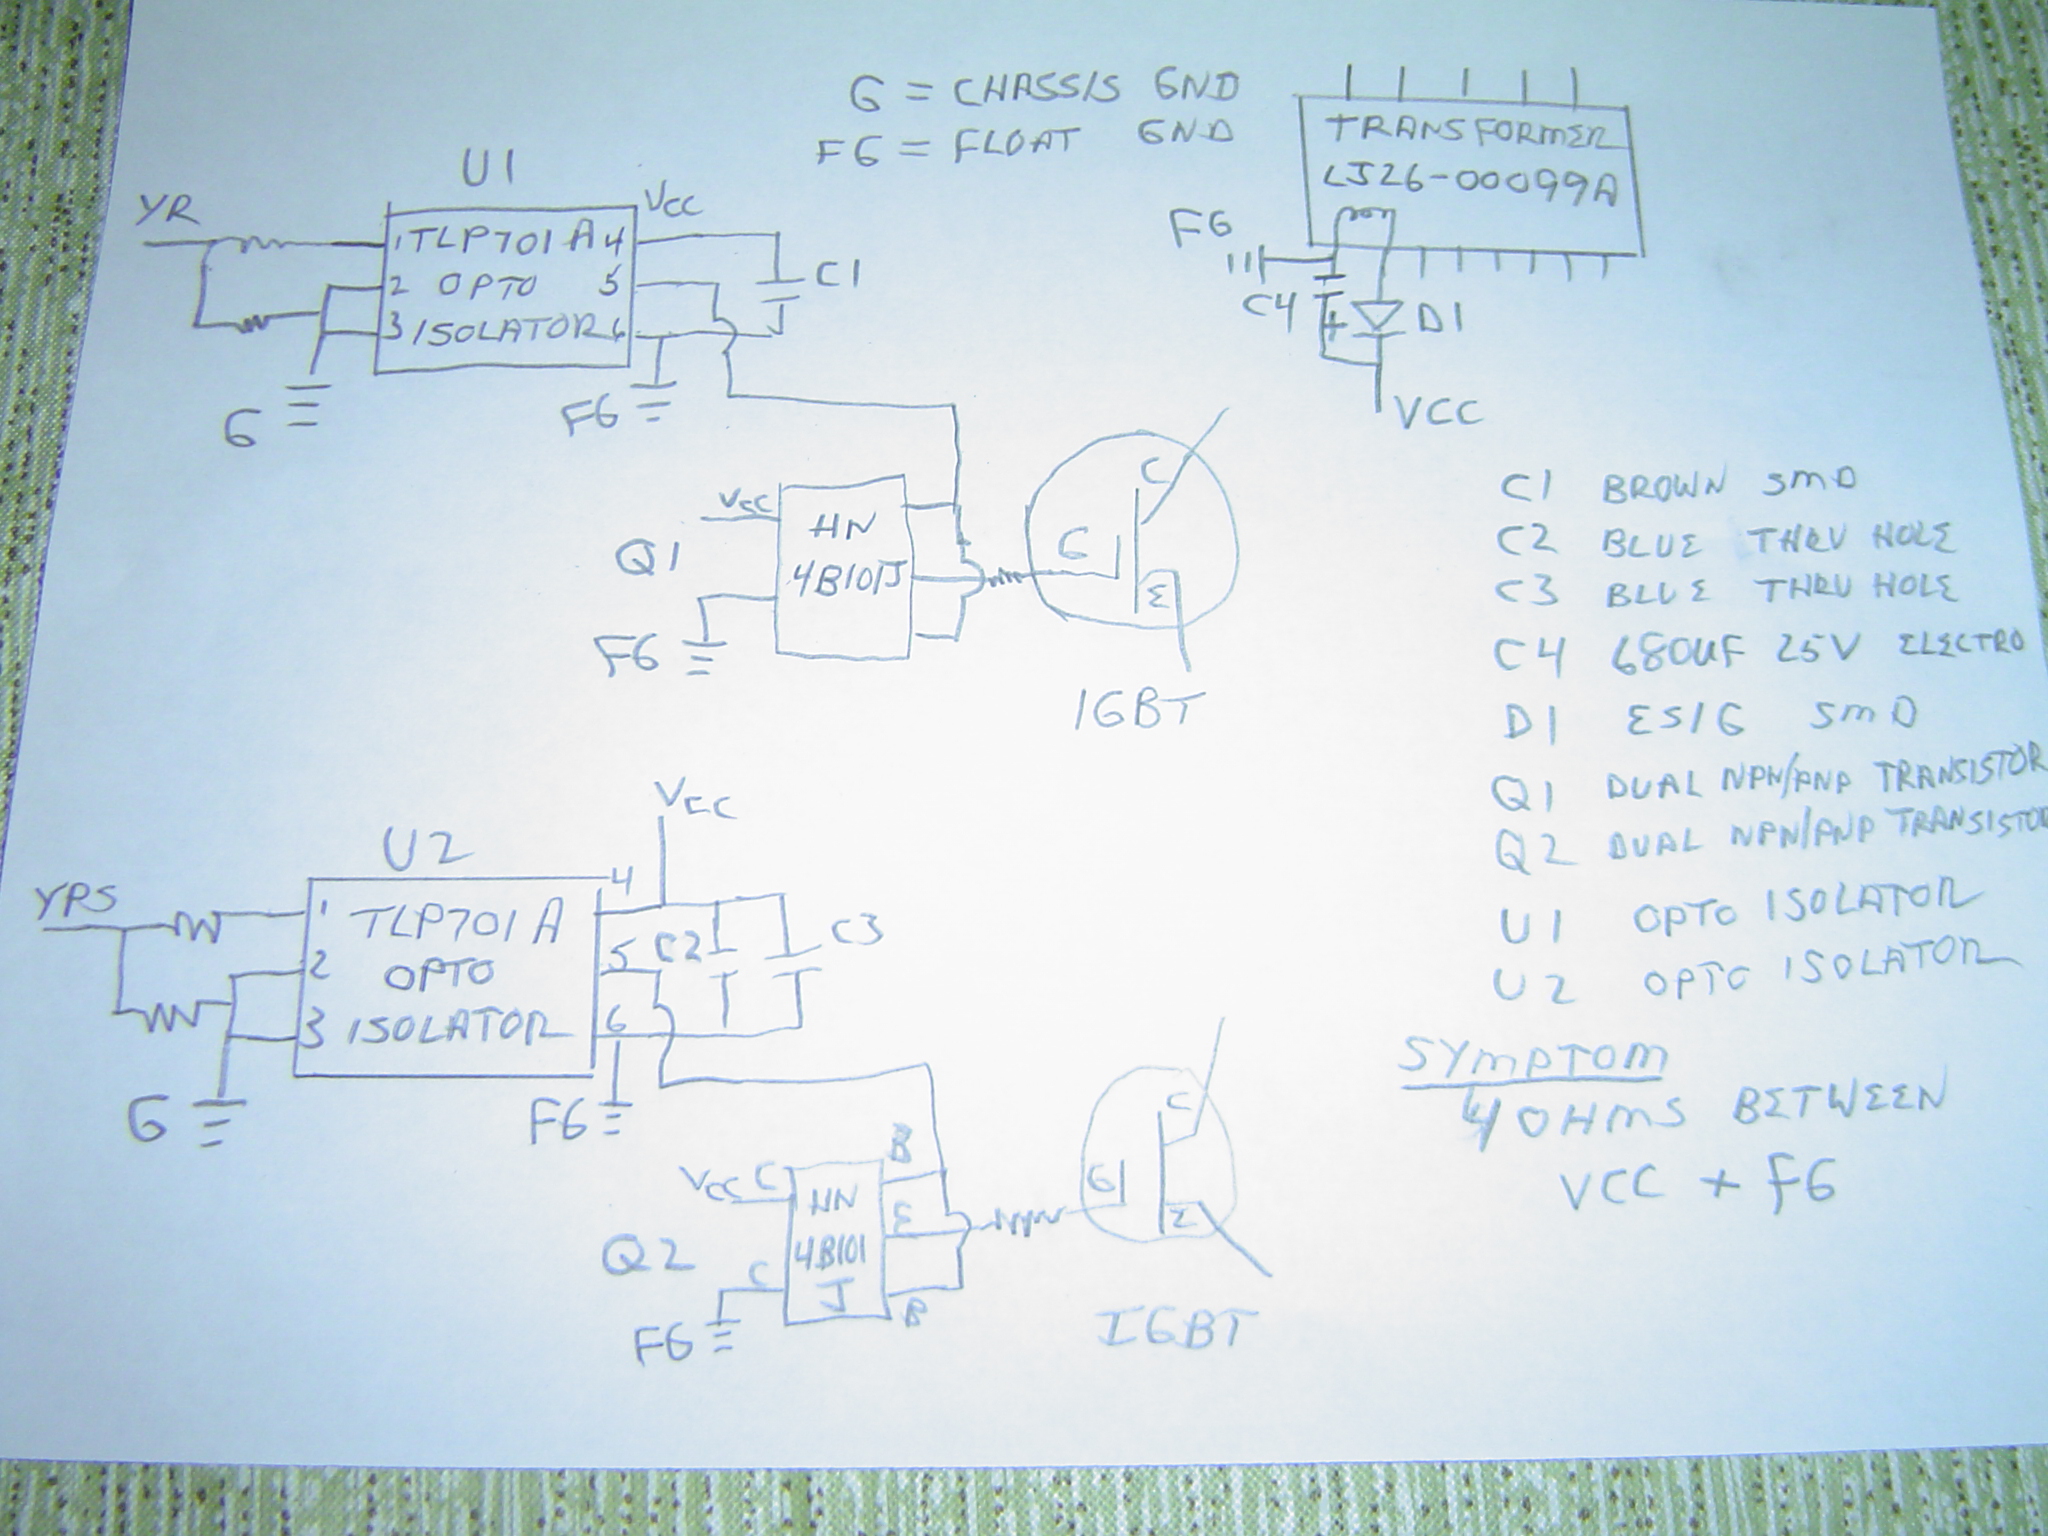 G = CHASSIS GND
FG = FLOAT GND
TRANSFORMER
LJ26-00099A
FG
C4
+
D1
VCC
U1
YR
VCC
1 TLP701A 4
2 OPTO 5
3 ISOLATOR 6
C1
G
FG
VCC
Q1
HN
4B101J
FG
G
C
E
IGBT
C1 BROWN SMD
C2 BLUE THRU HOLE
C3 BLUE THRU HOLE
C4 680UF 25V ELECTRO
D1 ES1G SMD
Q1 DUAL NPN/PNP TRANSISTOR
Q2 DUAL NPN/PNP TRANSISTOR
U1 OPTO ISOLATOR
U2 OPTO ISOLATOR
SYMPTOM
4 OHMS BETWEEN
VCC + FG
VCC
U2
YPS
1 TLP701A 4
2 OPTO 5
3 ISOLATOR 6
C2
C3
G
FG
VCC C
Q2
HN
4B101
J
B
E
B
C
FG
G
C
E
IGBT